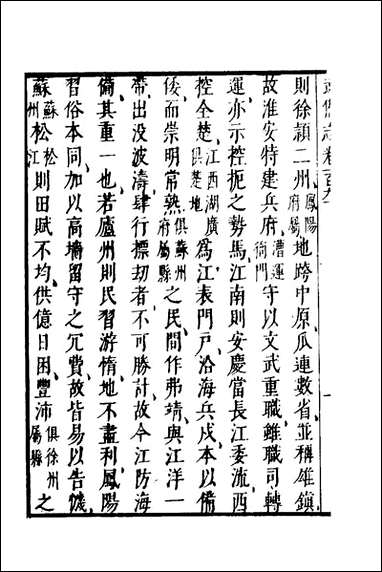 則徐頴二州鳳陽府屬地跨中原瓜連數省並稱雄鎮
故淮安特建兵府漕運衙門守以文武重職雖職司轉
運亦示控扼之勢焉江南則安慶當長江委流西
控全楚江西湖廣俱楚地為江表門戶沿海兵戍本以備
倭而崇明常熟俱蘇州府屬縣之民間作弗靖與江洋一
帶出没波濤肆行摽刼者不可勝計故今江防海
備其重一也若廬州則民習游惰地不盡利鳳陽
習俗本同加以高墻留守之冗費故皆易以告饑
蘇蘇州松松江則田賦不均供億日困豐沛俱徐州屬縣之